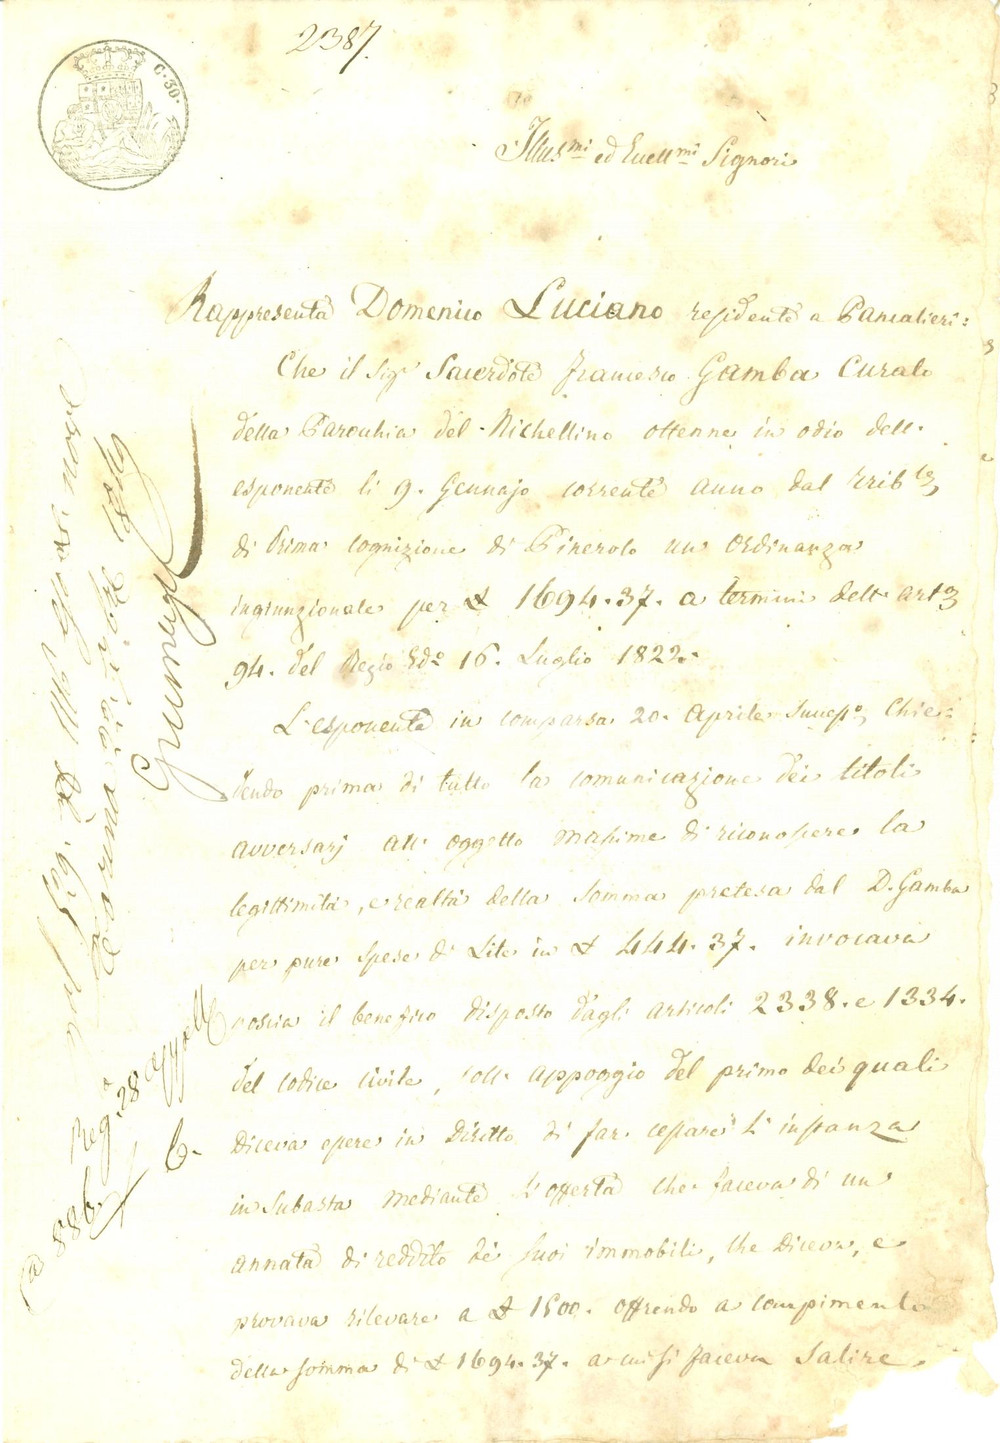 2387.
C. 30.
Illus.mi ed Eccell.mi Signori
Rappresenta Domenico Luciano residente a Pancalieri:
Che il Sig.r Sacerdote Francesco Gamba Curato
della Parochia del Nichellino ottenne in odio dell'
esponente li 9. Gennajo corrente anno dal Trib.le
di Prima Cognizione di Pinerolo un Ordinanza
ingiunzionale per £ 1694.37. a termini dell' art.o
94. del Regio Ed.o 16. Luglio 1822.
L'esponente in comparsa 20. Aprile succes.o, chie=
dendo prima di tutto la comunicazione dei titoli
avversarj all' oggetto massime di riconoscere la
legittimità, e realtà della somma pretesa dal D. Gamba
per pure spese di Lite in £ 444.37. invocava
poscia il beneficio disposto dagli articoli 2338. e 1334.
del codice civile, coll' appoggio del primo dei quali
diceva essere in diritto di far cessare l' instanza
in subasta mediante l'offerta che faceva di un
annata di reddito de' suoi immobili, che diceva, e
provava rilevare a £ 1500. offrendo a compimento
della somma di £ 1694.37. a cui si faceva salire
Reg.a 28 appello
C.
a 886